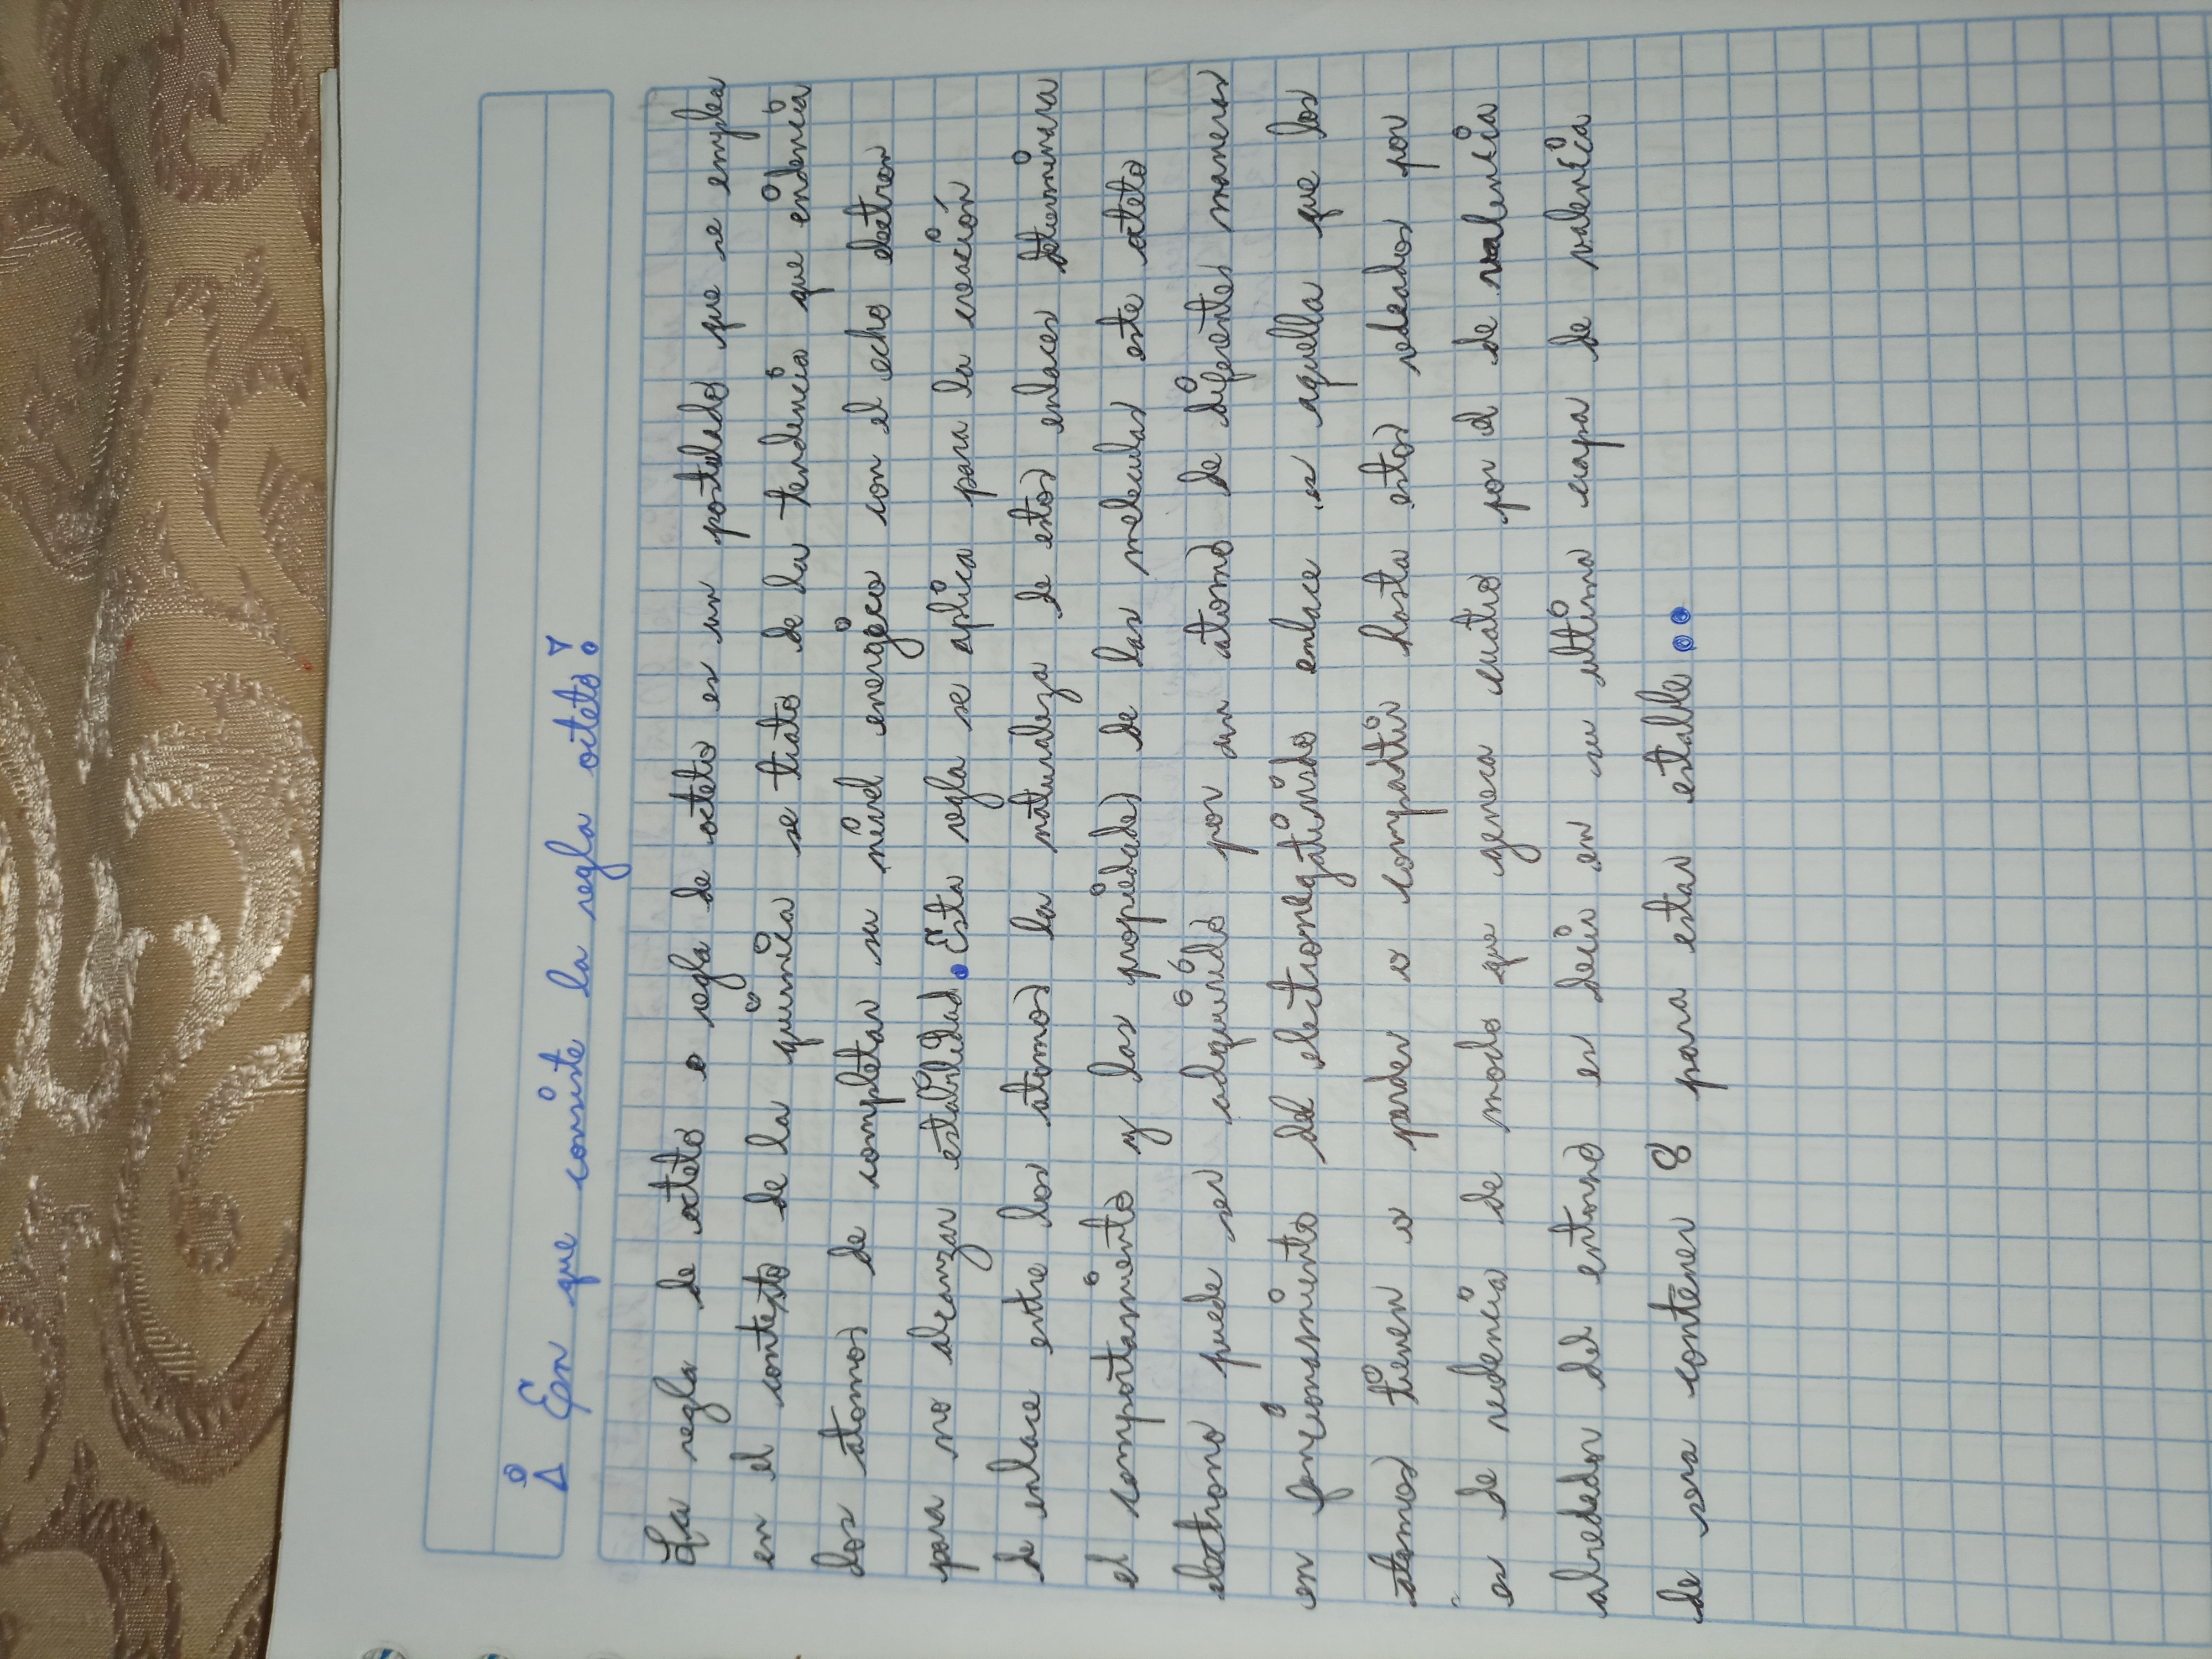 ¿En que consiste la regla octeto?
La regla de octeto o regla de octeto es un postulado que se emplea
en el contexto de la química se trato de la tendencia que endencia
los atomos de completar su nivel energico con el echo electron
para no alcanzar estabilidad. Esta regla se aplica para la creación
de enlace entre los atomos la naturaleza de estos enlaces determinara
el comportamiento y las propiedades de las moleculas este octeto
electrono puede ser adquirido por un atomo de diferentes maneras
en funcionamiento del electronegatividad enlace es aquella que los
atomos tienen o perder o compartir hasta estos rodeados por
es de redencia de modo que genera cuatro por el de valencia
alrededor del entorno es decir en su ultima capa de valencia
de sera contener 8 para estar estable..